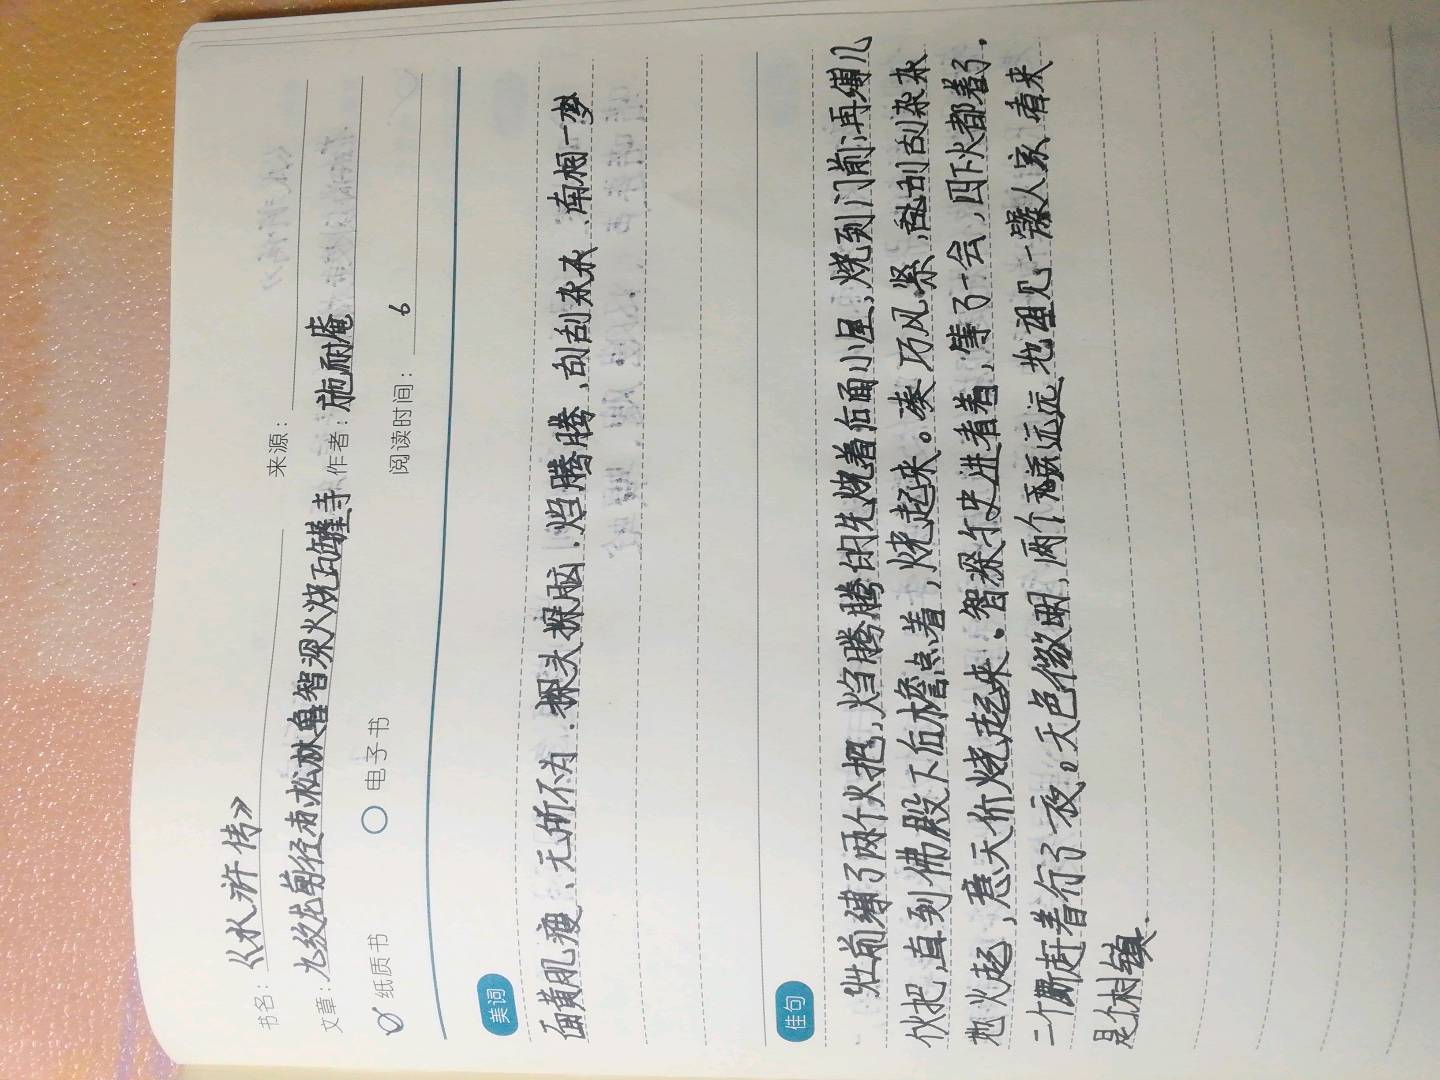 书名：《水浒传》 来源：
文章：九纹龙剪径赤松林鲁智深火烧瓦罐寺 作者：施耐庵
纸质书 电子书 阅读时间：6
美词
面黄肌瘦、无所不为、探头探脑、焰腾腾、刮刮杂杂、南柯一梦
佳句
灶前缚了两个火把，焰腾腾的先烧着后面小屋，烧到门前；再缚几
伙把，直到佛殿下后檐点着，烧起来。凑巧风紧，刮刮杂杂
地火起，竟天价烧起来。智深与史进看着，等了一会，四下火都着了。
二个厮赶着行了一夜。天色微明，两个远远地望见一簇人家，看来
是个村镇.